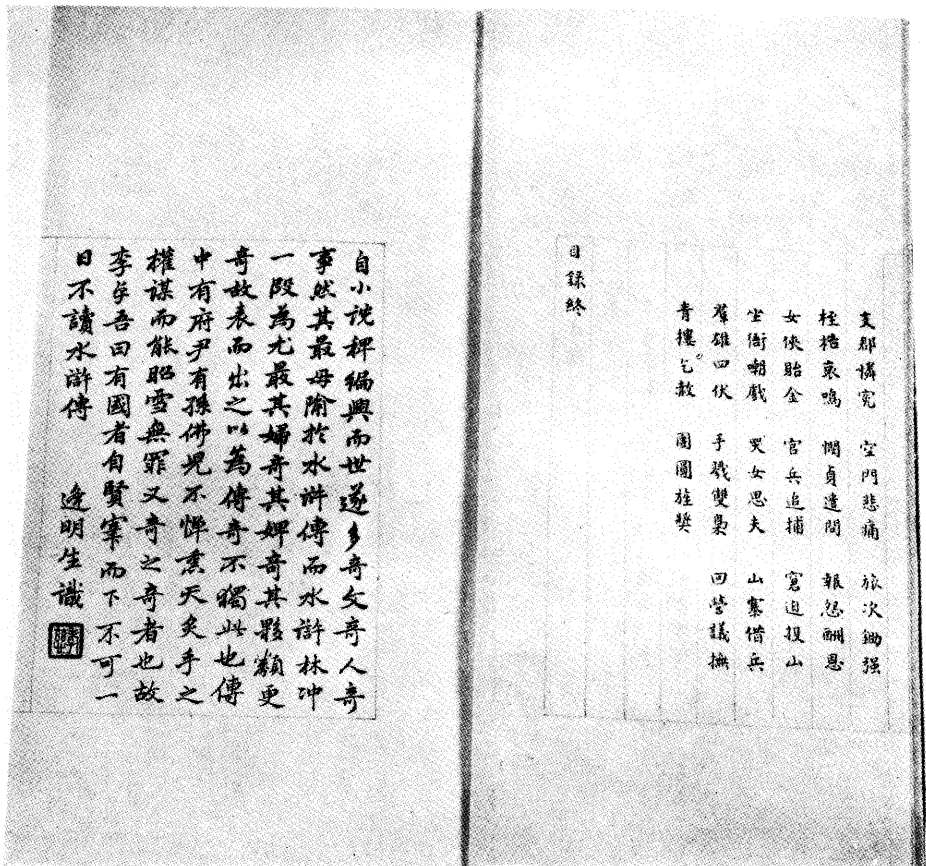 夋郡憐寃 空門悲痛 旅次鋤强
桎梏哀鳴 憫貞遣間 報怨酬恩
女俠貽金 官兵追捕 窘迫投山
坐衙嘲戲 哭女思夫 山寨借兵
羣雄四伏 手戮雙梟 回營議撫
青樓乞赦 團圓旌獎
目録終
自小説稗編興而世遂多奇文奇人奇
事然其最毋踰於水滸傳而水滸林冲
一段為尤最其婦奇其婢奇其夥類更
奇故表而出之以為傳奇不獨此也傳
中有府尹有孫佛兒不憚熏天炙手之
權謀而能昭雪無罪又奇之奇者也故
李卓吾曰有國者自賢宰而下不可一
日不讀水滸傳 逢明生識